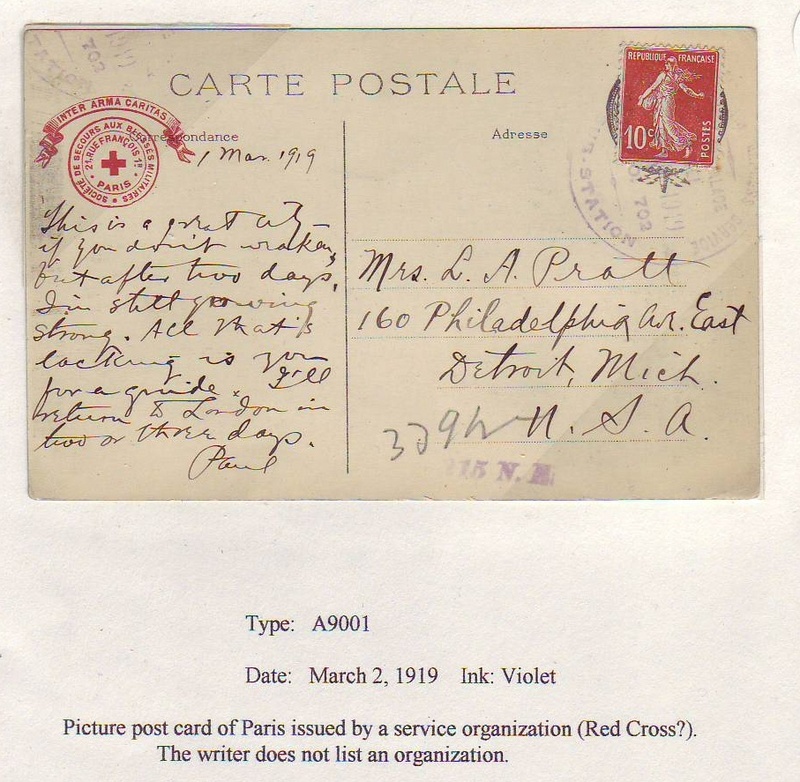 CARTE POSTALE
INTER ARMA CARITAS
SOCIÉTÉ DE SECOURS AUX BLESSÉS MILITAIRES
21, RUE FRANÇOIS 1ER
PARIS
Correspondance
1 Mar. 1919
This is a great city
if you don't weaken,
but after two days,
I'm still growing
strong. All that is
lacking is you
for a guide. I'll
return to London in
two or three days.
Paul
REPUBLIQUE FRANÇAISE
10c
POSTES
Adresse
TATION
702
1919
T. STATION
702
1919
Mrs. L. A. Pratt
160 Philadelphia Av. East
Detroit, Mich.
U. S. A.
Type: A9001
Date: March 2, 1919 Ink: Violet
Picture post card of Paris issued by a service organization (Red Cross?).
The writer does not list an organization.